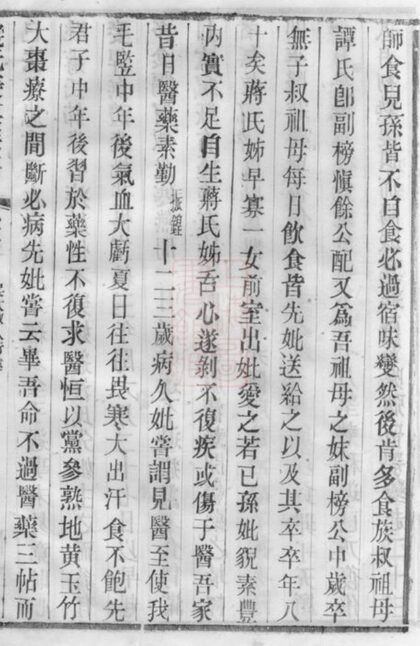 師食兒孫皆不自食必過宿味變然後肯多食族叔祖母
譚氏卽副榜愼餘公配又爲吾祖母之妹副榜公中歲卒
無子叔祖母每日飮食皆先妣送給之以及其卒卒年八
十矣蔣氏姊早寡一女前室出妣愛之若已孫妣貌素豐
內實不足自生蔣氏姊吾心遂剝不復疾或傷于醫吾家
昔日醫藥素勤振鐙十二三歲病久妣嘗謂見醫至使我
毛豎中年後氣血大虧夏日往往畏寒大出汗食不飽先
君子中年後習於藥性不復求醫恒以黨參熟地黃玉竹
大棗療之間斷必病先妣嘗云畢吾命不過醫藥三帖而